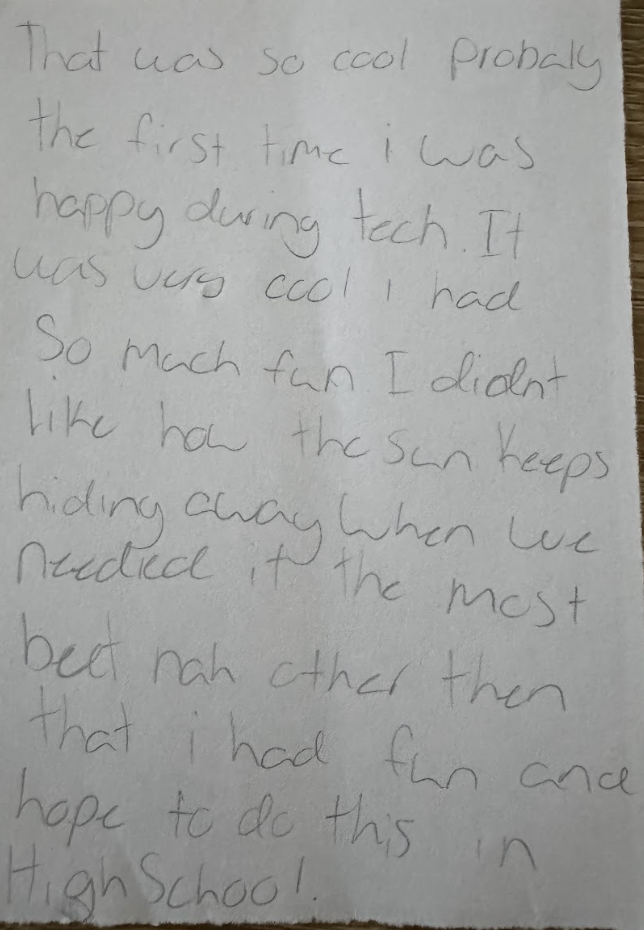 That was so cool probaly
the first time i was
happy during tech. It
was very cool i had
So much fun I didnt
like how the sun keeps
hiding away when we
needed it the most
bect nah other then
that i had fun and
hope to do this in
High School.